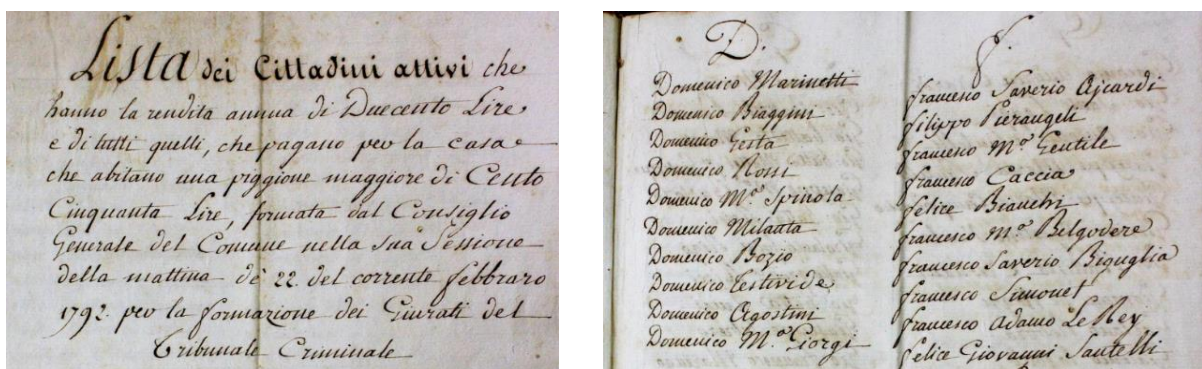 Lista dei Cittadini attivi che
hanno la rendita annua di Duecento Lire
e di tutti quelli, che pagano per la casa
che abitano una piggione maggiore di Cento
Cinquanta Lire, formata dal Consiglio
Generale del Comune nella Sua Sessione
della mattina de 22. del corrente febbraro
1792. per la formazione dei Giurati del
Tribunale Criminale
D.
Domenico Marinetti
Domenico Biaggini
Domenico Gesta
Domenico Rossi
Domenico M.ª Spinola
Domenico Milanta
Domenico Bozio
Domenico Agostini
Domenico M.ª Giorgi
f.
francesco Saverio Ajcardi
filippo Pierangeli
francesco M.ª Gentile
francesco Caccia
felice Bianchi
francesco M.ª Belgodere
francesco Saverio Biguglia
francesco Simonet
francesco Adamo Le Rey
felice Giovanni Santelli